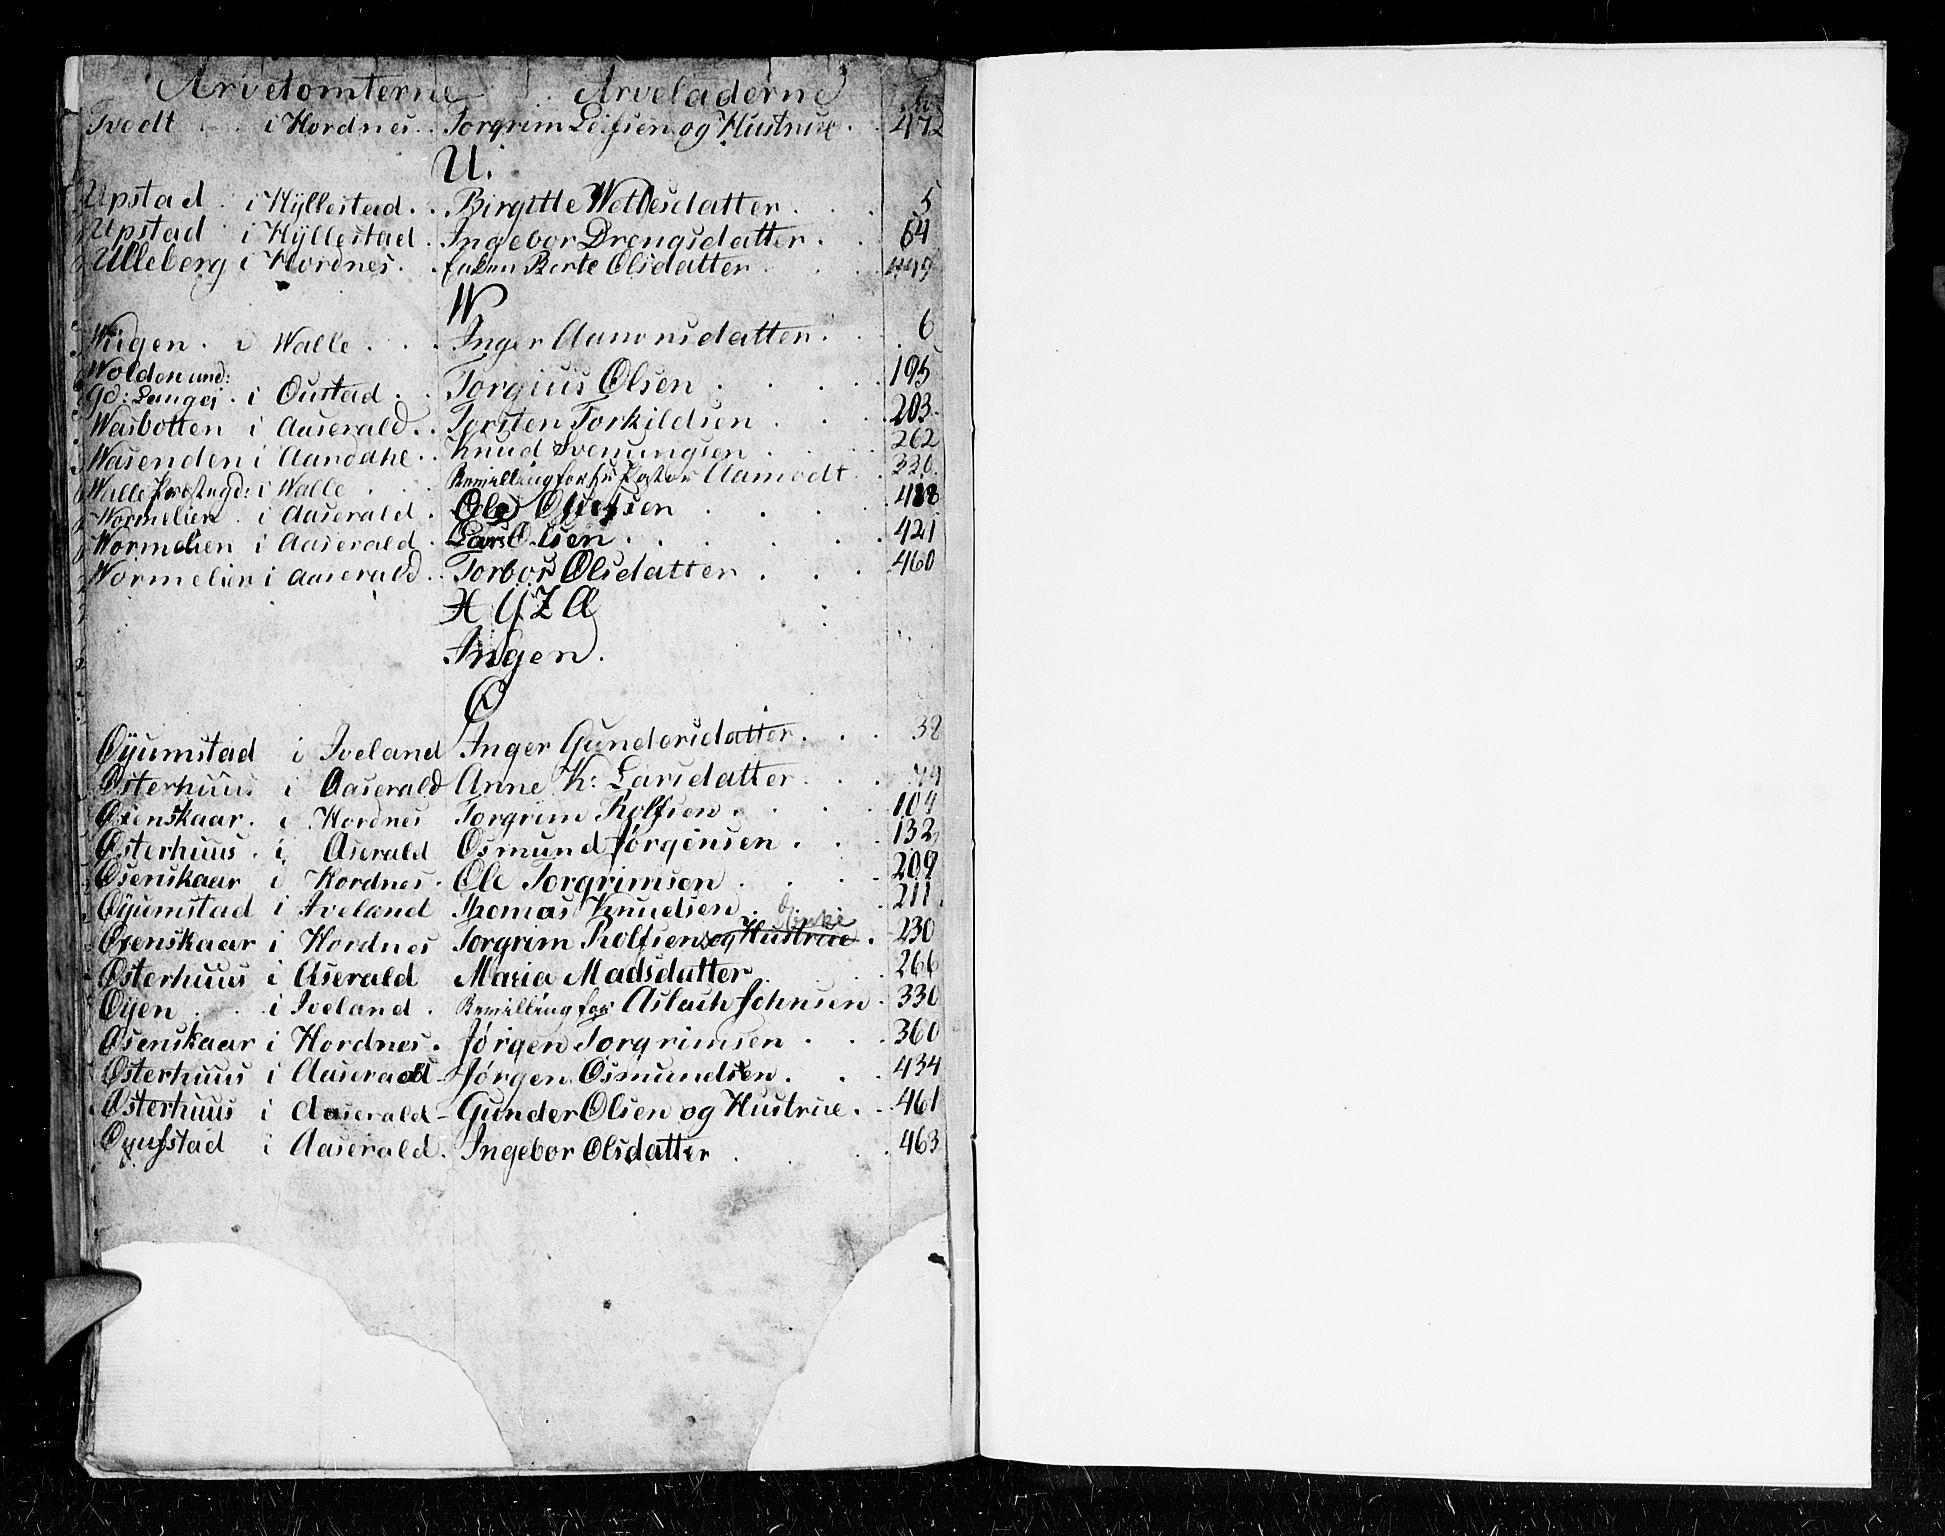 Arvetomterne Arveladerne
Tvedt i Hordnes Torgrim Leifsen og Hustrue 472
U.
Upstad i Hyllestad Birgitte Wettesdatter 5
Upstad i Hyllestad Ingebor Drengsdatter 64
Ulleberg i Hordnes Berte Olsdatter 449
W
Wiigen i Walle Inger Aamonsdatter 6
Wolden und:
Gd: Langei i Oustad Torgius Olsen 195
Wasbotten i Aaserald Torsten Torkildsen 203
Wasenden i Aandahl Knud Svenungsen 262
Walle Præstegd: i Walle Bevilling for Hr Pastor Aamodt 326
Wormelien i Aaserald Ole Olsen 418
Wormelien i Aaserald Lars Olsen 421
Wormelien i Aaserald Torbor Olsdatter 460
X Y Z Æ
Ingen.
Ø
Øyumstad i Iveland Inger Gundersdatter 38
Østerhuus i Aaserald Anne K: Larsdatter 79
Øsenskaar i Hordnes Torgrim Rolfsen 104
Østerhuus i Aserald Osmund Jørgensen 132
Øsenskaar i Hordnes Ole Torgrimsen 209
Øyumstad i Iveland Thomas Knudsen 211
Enke
Øsenskaar i Hordnes Torgrim Rolfsen og Hustrue 230
Østerhuus i Aserald Maria Madsdatter 266
Øyen i Iveland Bevilling for Aslach Johnsen 330
Øsenskaar i Hordnes Jørgen Torgrimsen 360
Østerhuus i Aaserald Jørgen Osmundsen 434
Østerhuus i Aaserald Gunder Olsen og Hustrue 461
Øyufstad i Aaserald Ingebor Olsdatter 463